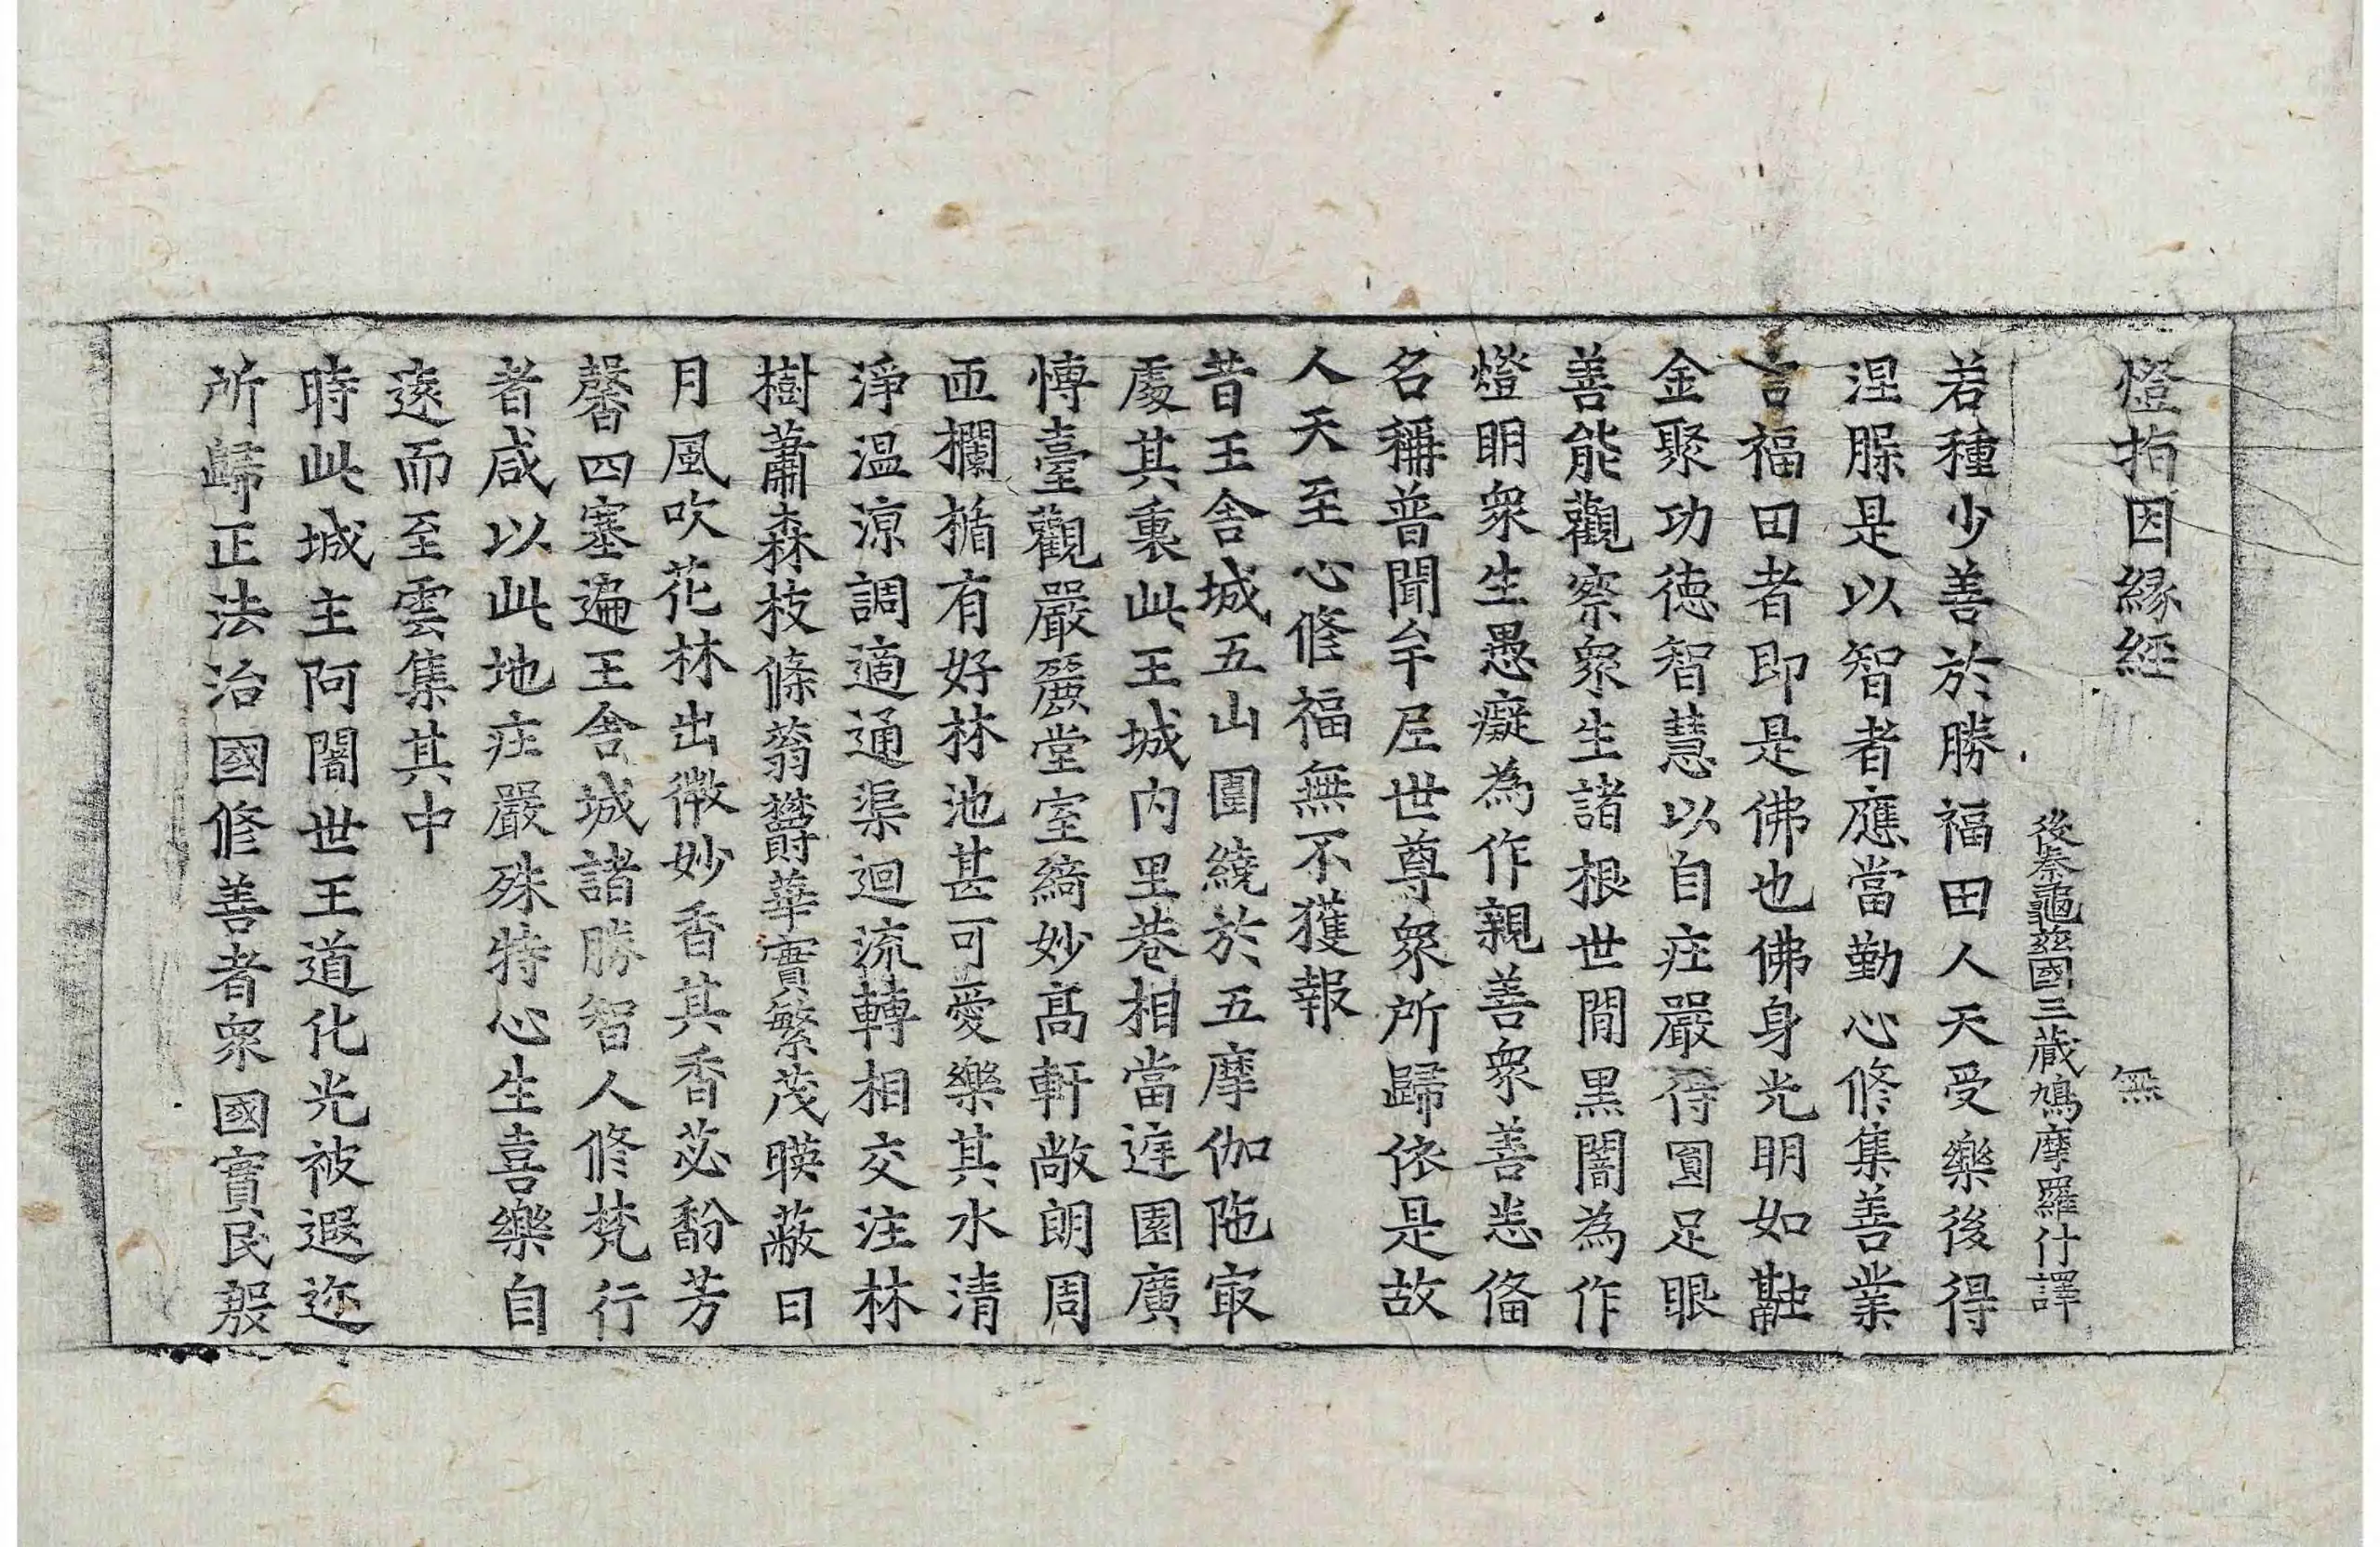 燈指因緣經　無
後秦龜茲國三藏鳩摩羅什譯
若種少善於勝福田人天受樂後得
涅脲是以智者應當勤心修集善業
言福田者即是佛也佛身光明如融
金聚功德智慧以自庄嚴得圓足眼
善能觀察衆生諸根世間黒闇為作
燈明衆生愚癡為作親善衆善悉俻
名稱普聞牟尼世尊衆所歸依是故
人天至心修福無不獲報
昔王舍城五山圍繞於五摩伽陁㝡
處其裏此王城内里巷相當遊園廣
博臺觀嚴麗堂室綺妙髙軒敞朗周
匝欄楯有好林池甚可愛樂其水清
淨温涼調適通渠迴流轉相交注林
樹蕭森枝條蓊欝華實繁茂暎蔽日
月風吹花林出微妙香其香苾馚芳
馨四塞遍王舍城諸勝智人修梵行
者咸以此地庄嚴殊特心生喜樂自
遠而至雲集其中
時此城主阿闍世王道化光被遐迩
所歸正法治國修善者衆國實民殷